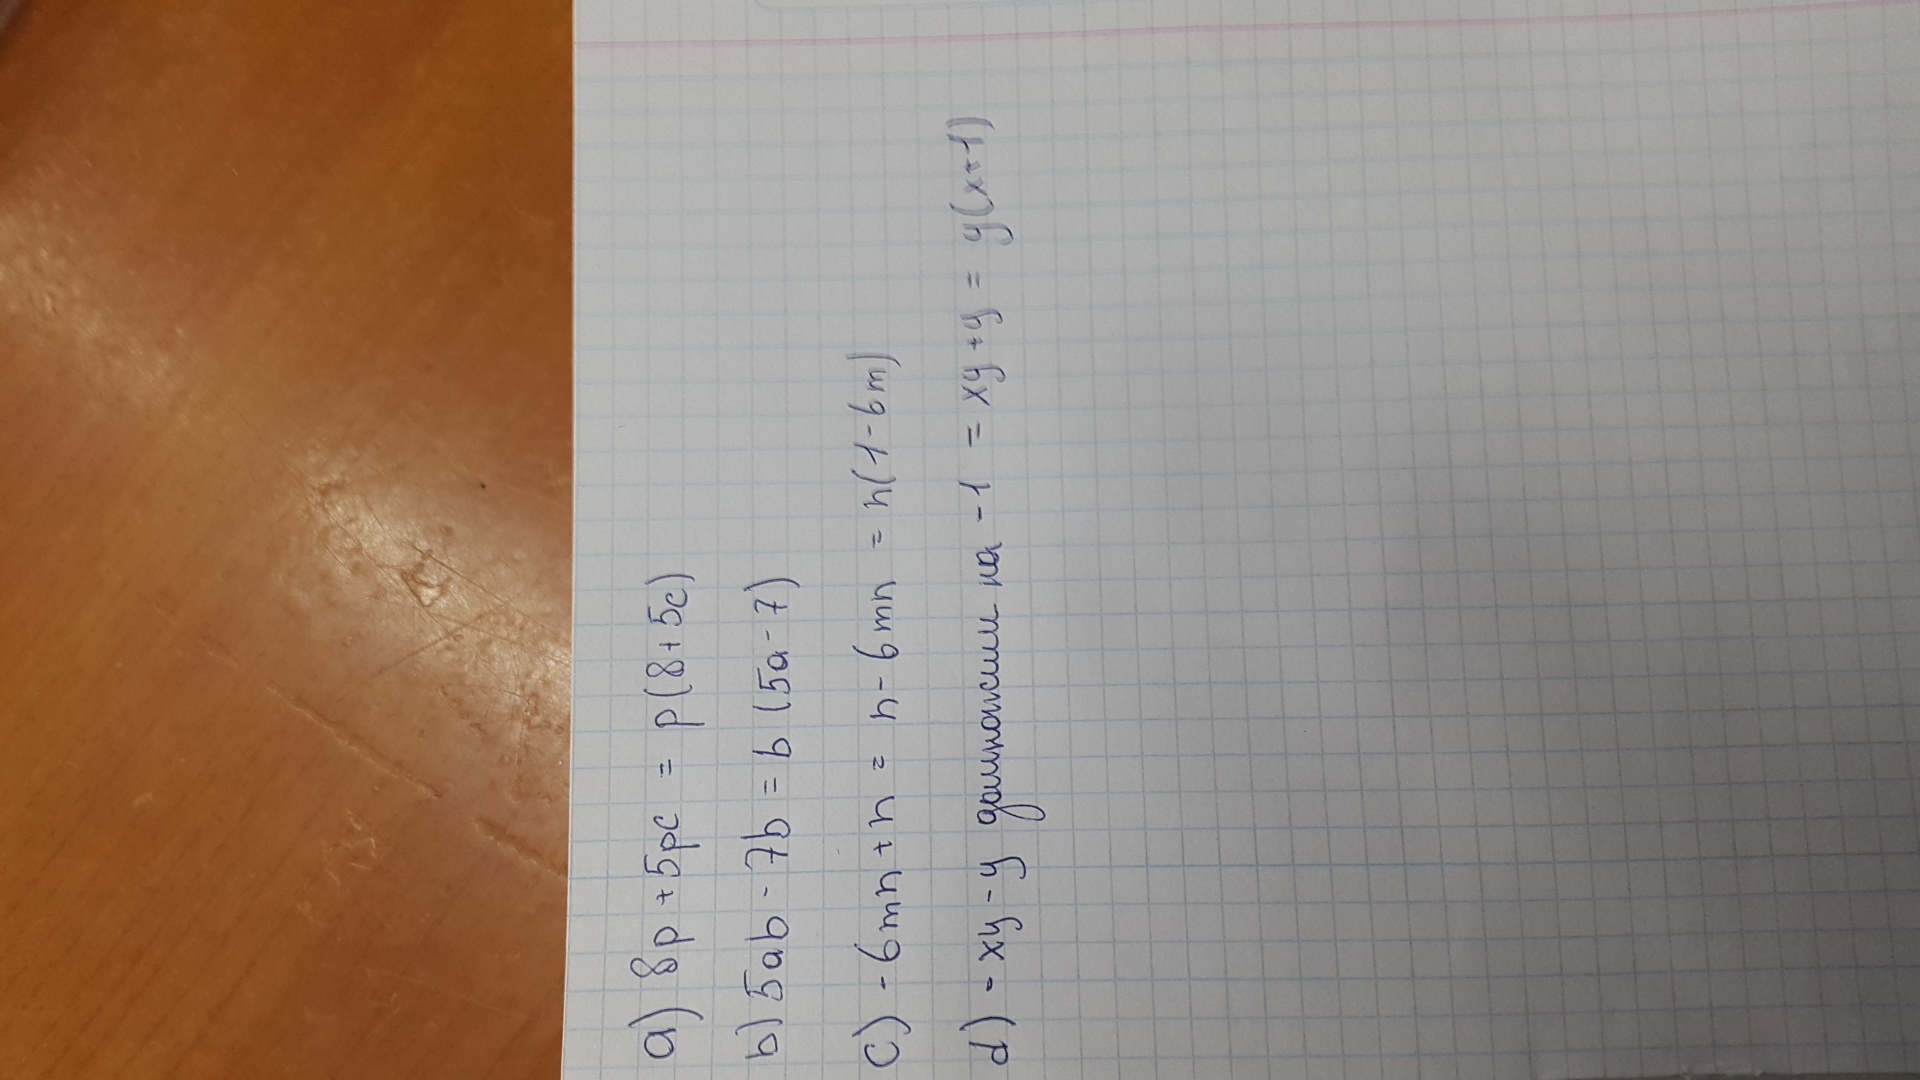 a) 8p + 5pc = p(8+5c)
b) 5ab - 7b = b (5a-7)
c) -6mn + n = n - 6mn = n(1-6m)
d) -xy - y домножим на -1 = xy + y = y(x+1)